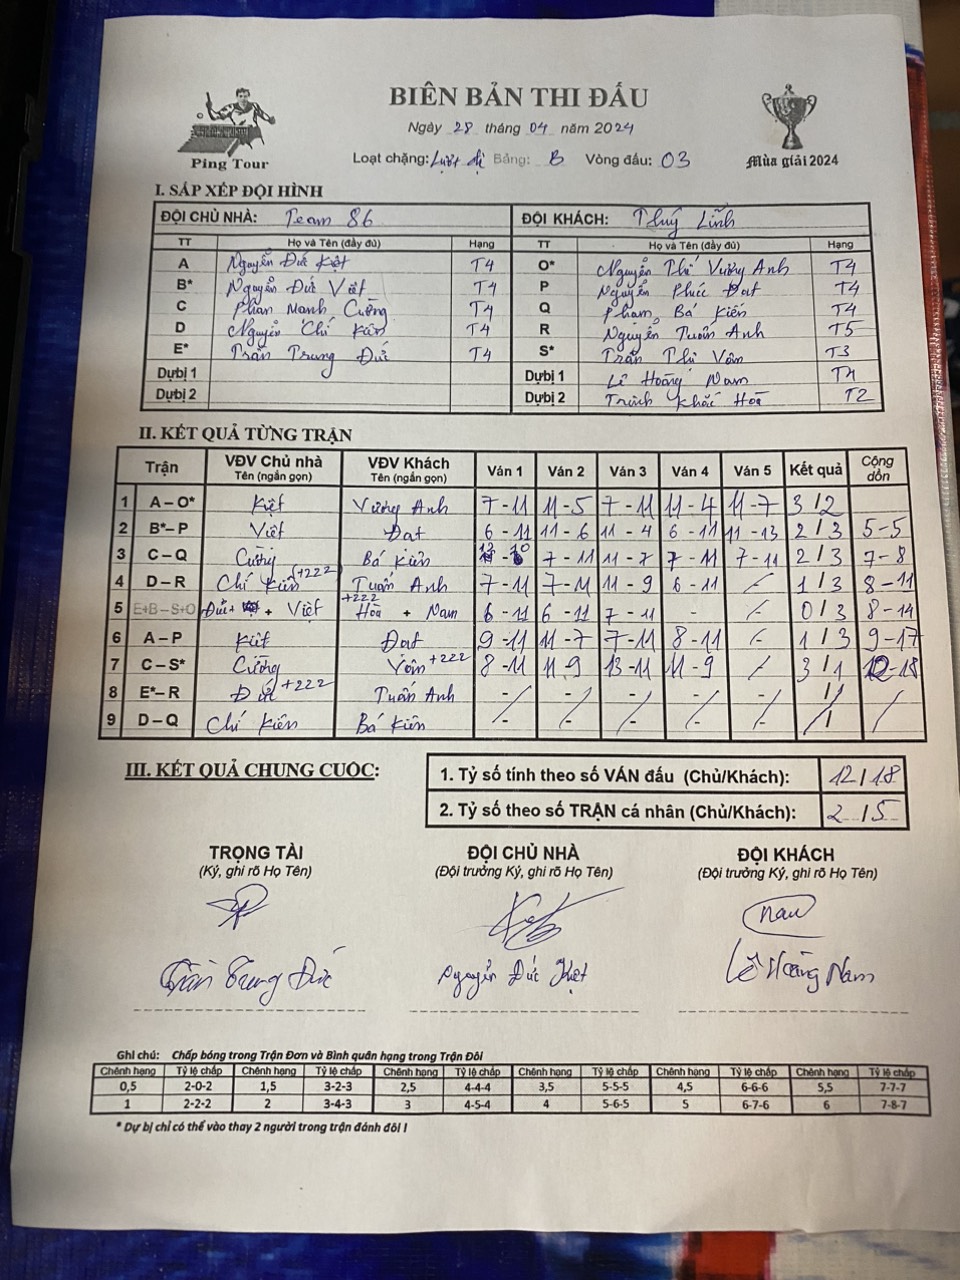 BIÊN BẢN THI ĐẤU
Ngày 28 tháng 04 năm 2024
Ping Tour
Loạt chặng: Lượt đi Bảng: B Vòng đấu: 03
Mùa giải 2024
I. SẮP XẾP ĐỘI HÌNH
ĐỘI CHỦ NHÀ: Team 86 ĐỘI KHÁCH: Thuý Lĩnh
TT Họ và Tên (đầy đủ) Hạng TT Họ và Tên (đầy đủ) Hạng
A Nguyễn Đức Kiệt T4 O* Nguyễn Thế Vương Anh T4
B* Nguyễn Đức Việt T4 P Nguyễn Phúc Đạt T4
C Phan Mạnh Cường T4 Q Phạm Bá Kiên T4
D Nguyễn Chí Kiên T4 R Nguyễn Tuấn Anh T5
E* Trần Trung Đức T4 S* Trần Thị Vân T3
Dựbị 1 Dựbị 1 Lê Hoàng Nam T4
Dựbị 2 Dựbị 2 Trịnh Khắc Hoà T2
II. KẾT QUẢ TỪNG TRẬN
Trận VĐV Chủ nhà Tên (ngắn gọn) VĐV Khách Tên (ngắn gọn) Ván 1 Ván 2 Ván 3 Ván 4 Ván 5 Kết quả Cộng dồn
1 A – O* Kiệt Vương Anh 7-11 11-5 7-11 11-4 11-7 3/2
2 B*– P Việt Đạt 6-11 11-6 11-4 6-11 11-13 2/3 5-5
3 C – Q Cường Bá Kiên 7-11 11-7 7-11 7-11 2/3 7-8
4 D – R Chí Kiên (+222 Tuấn Anh 7-11 7-11 11-9 6-11 / 1/3 8-11
5 E+B – S+O Đức + Việt +222 Hòa + Nam 6-11 6-11 7-11 - / 0/3 8-14
6 A – P Kiệt Đạt 9-11 11-7 7-11 8-11 / 1/3 9-17
7 C – S* Cường Vân +222 8-11 11-9 13-11 11-9 / 3/1 12-18
8 E*– R Đức +222 Tuấn Anh
9 D – Q Chí Kiên Bá Kiên
III. KẾT QUẢ CHUNG CUỘC:
1. Tỷ số tính theo số VÁN đấu (Chủ/Khách): 12/18
2. Tỷ số theo số TRẬN cá nhân (Chủ/Khách): 2/5
TRỌNG TÀI ĐỘI CHỦ NHÀ ĐỘI KHÁCH
(Ký, ghi rõ Họ Tên) (Đội trưởng Ký, ghi rõ Họ Tên) (Đội trưởng Ký, ghi rõ Họ Tên)
Nam
Trần Trung Đức Nguyễn Đức Kiệt Lê Hoàng Nam
Ghi chú: Chấp bóng trong Trận Đơn và Bình quân hạng trong Trận Đôi
Chênh hạng Tỷ lệ chấp Chênh hạng Tỷ lệ chấp Chênh hạng Tỷ lệ chấp Chênh hạng Tỷ lệ chấp Chênh hạng Tỷ lệ chấp Chênh hạng Tỷ lệ chấp
0,5 2-0-2 1,5 3-2-3 2,5 4-4-4 3,5 5-5-5 4,5 6-6-6 5,5 7-7-7
1 2-2-2 2 3-4-3 3 4-5-4 4 5-6-5 5 6-7-6 6 7-8-7
* Dự bị chỉ có thể vào thay 2 người trong trận đánh đôi !